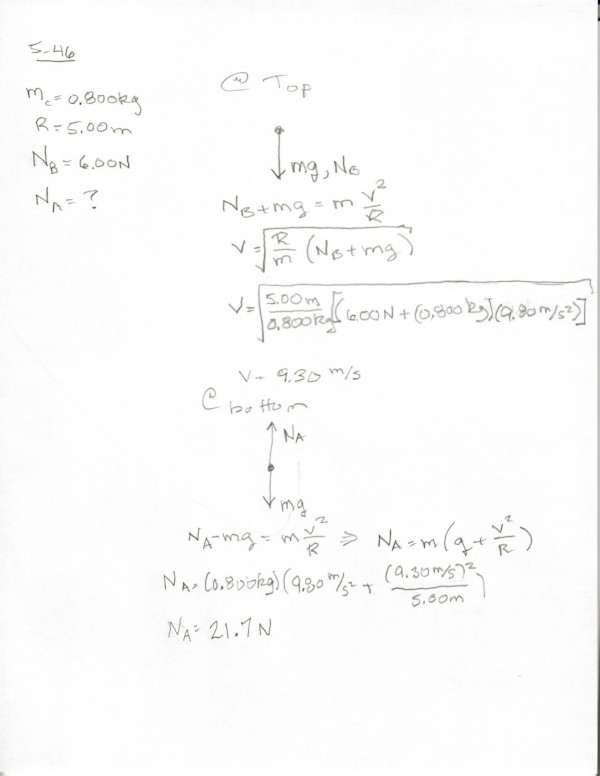 5-46
m_c = 0.800kg
R = 5.00m
N_B = 6.00N
N_A = ?
@ Top
mg, N_B
N_B + mg = m v²/R
V = √(R/m (N_B + mg))
V = √(5.00m/0.800kg [(6.00N + (0.800kg)(9.80 m/s²)])
V = 9.30 m/s
@ bottom
N_A
mg
N_A - mg = m v²/R ⇒ N_A = m(g + v²/R)
N_A = (0.800kg)(9.80 m/s² + (9.30 m/s)²/5.00m)
N_A = 21.7N